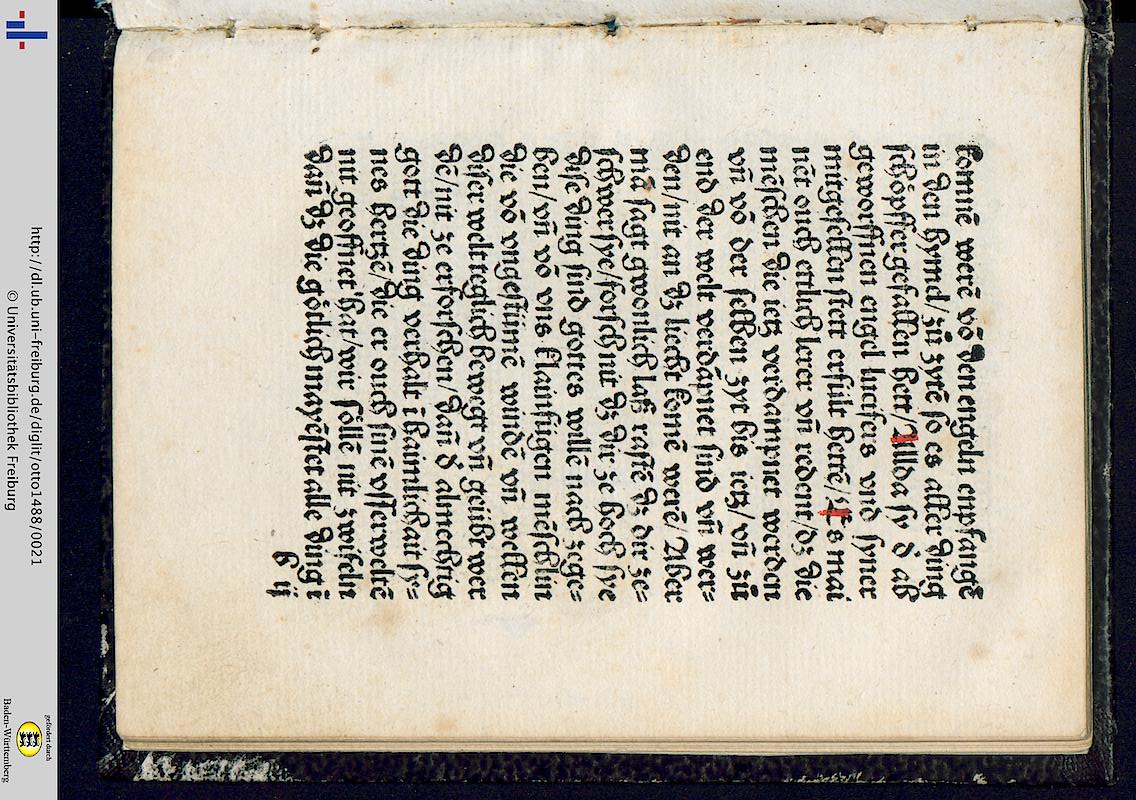 komnē werē vō den engeln enpfangē
in den hymel/ zů zytē so es aller ding
schöpffer gefallen hett/ Allda sy d' ab
geworffnen engel lucifers vnd syner
mitgesellen stett erfült hettē/ Es mai
nēt ouch ettlich lerer vn̄ redent/ dz die
mēschen die ietz verdampnet werden
vn̄ vō der selben zyt bis ietz/ vn̄ zů
end der welt verdāpnet sind vn̄ wer⸗
den/ nit an dz liecht komē werē/ Aber
mā sagt gwonlich laß rastē dz dir ze⸗
schwer sye/ forsch nit dz dir ze hoch sye
dise ding sind gottes willē nach zege⸗
ben/ vn̄ vō vns klainfügen mēschlin
die vō vngestümē windē vn̄ wellen
diser welt teglich bewegt vn̄ geübt wer
dē/ nit ze erforschen/ dan̄ d' almechtig
gott die ding verhalt ī haimlichait sy⸗
nes hertzē/ die er ouch sinē vsserweltē
nit geoffnet hat/ wir söllē nit zwifeln
dan̄ dz die götlich mayēstet alle ding ī
b ij
http://dl.ub.uni-freiburg.de/diglit/otto1488/0021
© Universitätsbibliothek Freiburg
gefördert durch
Baden-Württemberg